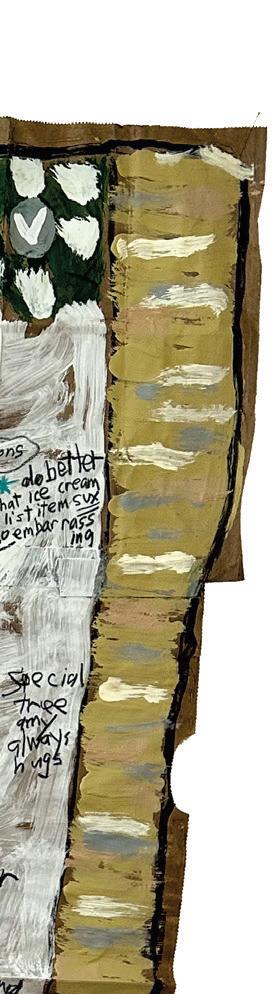 V
ons
do better
hat ice cream
list item sux
o embarrass
ing
special
tree
amy
always
hugs
r